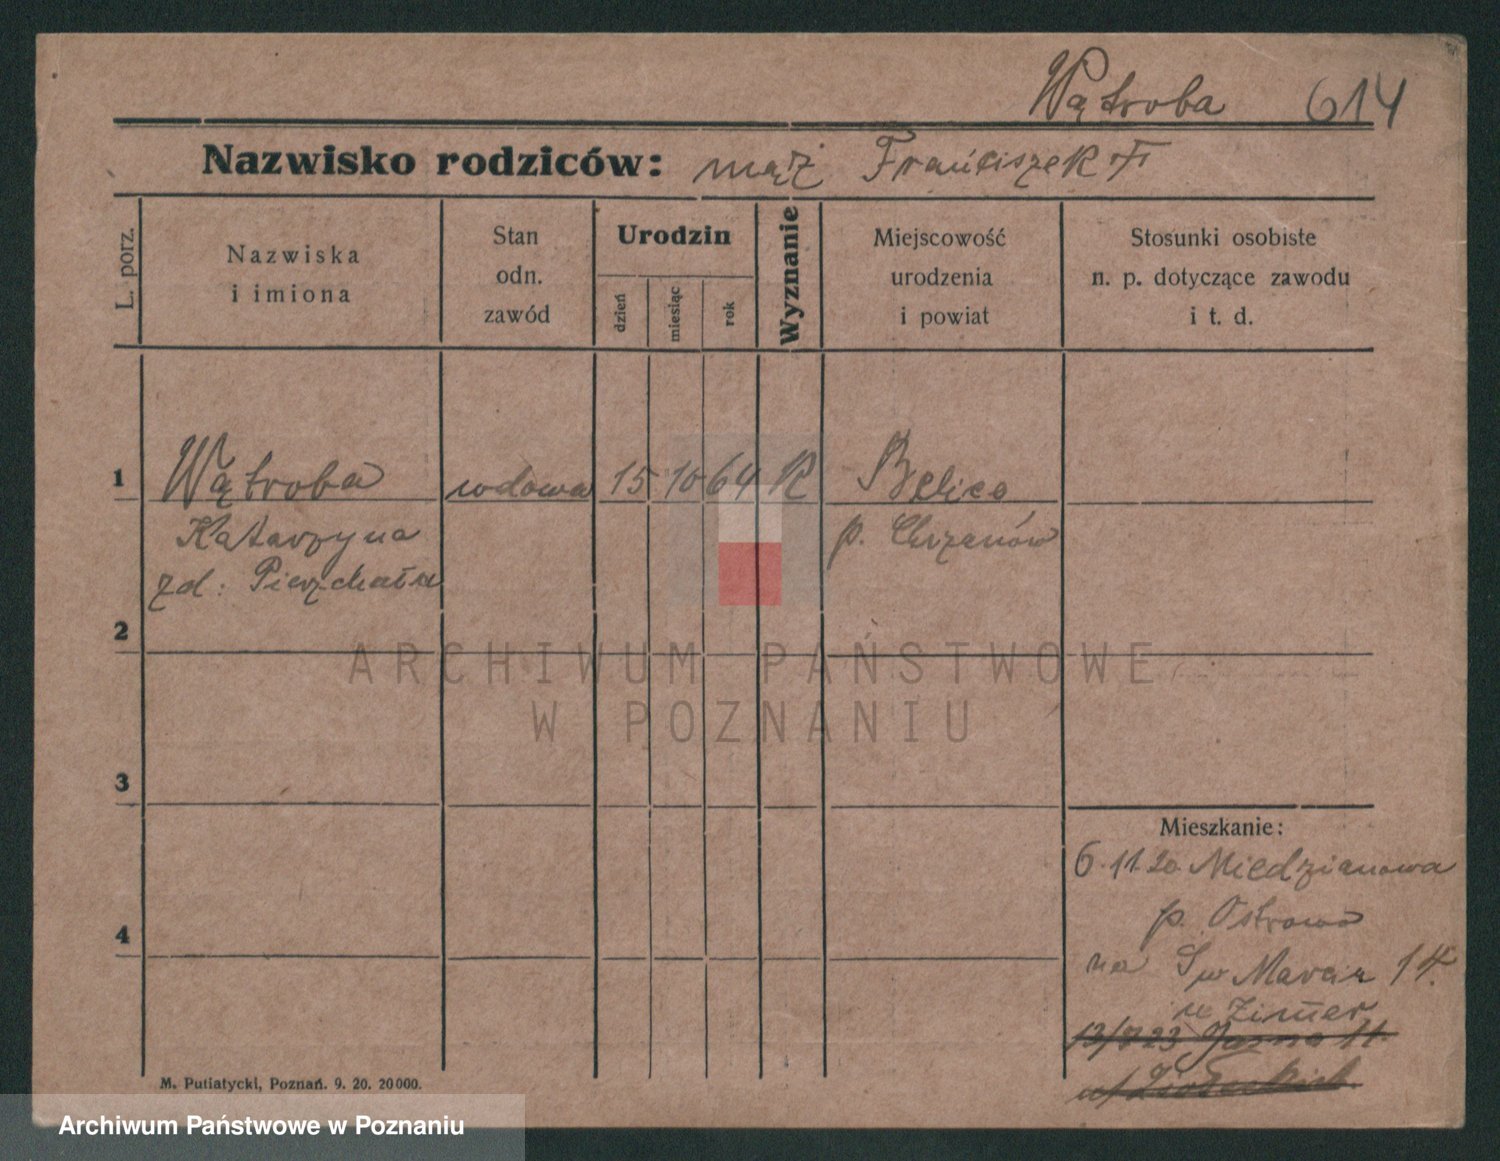 Wątroba 614
Nazwisko rodziców: mąż Franciszek
L. porz.
Nazwiska
i imiona
Stan
odn.
zawód
Urodzin
dzień
miesiąc
rok
Wyznanie
Miejscowość
urodzenia
i powiat
Stosunki osobiste
n. p. dotyczące zawodu
i t. d.
1 Wątroba wdowa 15 10 64 R
Katarzyna p. Chrzanów
zd: Pierzchała
2
ARCHIWUM PAŃSTWOWE
W POZNANIU
3
Mieszkanie:
6.11.20 Miedzianowa
p. Ostrowo
4
na Św Marcin 14.
u Zimer
13/8 23 Jasna 11.
M. Putiatycki, Poznań. 9. 20. 20000.
Archiwum Państwowe w Poznaniu